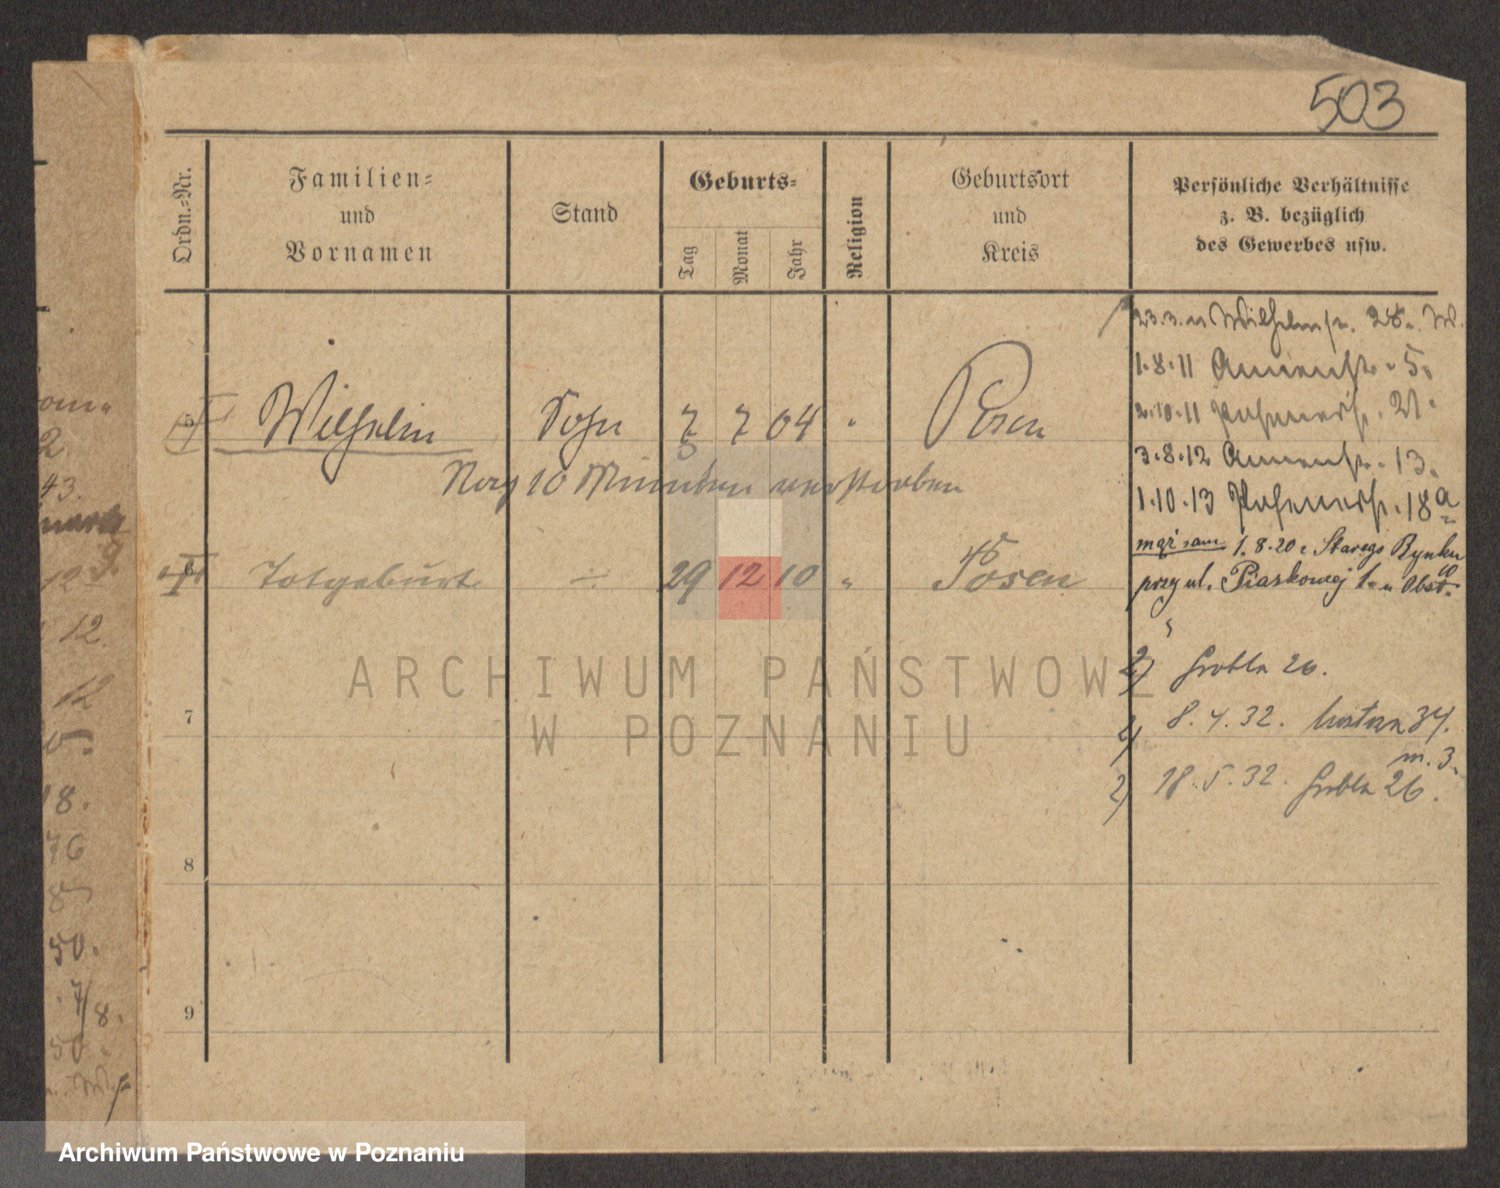 503
Ordn.-Nr.
Familien-
und
Vornamen
Stand
Geburts-
Tag
Monat
Jahr
Religion
Geburtsort
und
Kreis
Persönliche Verhältnisse
z. B. bezüglich
des Gewerbes usw.
23.3.11 Wilhelmstr. 28. W.
1.8.11 Annenstr. 5.
2.10.11 Posenerstr. 21.
5 Wilhelm Sohn 7 7 04 " Posen
Nach 10 Minuten verstorben
3.8.12 Annenstr. 13.
1.10.13 Posenerstr. 18a
mąż sam 1.8.20 z Starego Rynku
6 Totgeburt ÷ 29 12 10 " Posen
przy ul. Piaskowej
2) Grobla 26.
7
2) 8.4.32. 34.
m. 3.
2) 18.5.32. Grobla 26.
8
9
om.
2.
43.
12
12.
12
18.
76
50.
7/8.
50.
ARCHIWUM PAŃSTWOWE
W POZNANIU
Archiwum Państwowe w Poznaniu